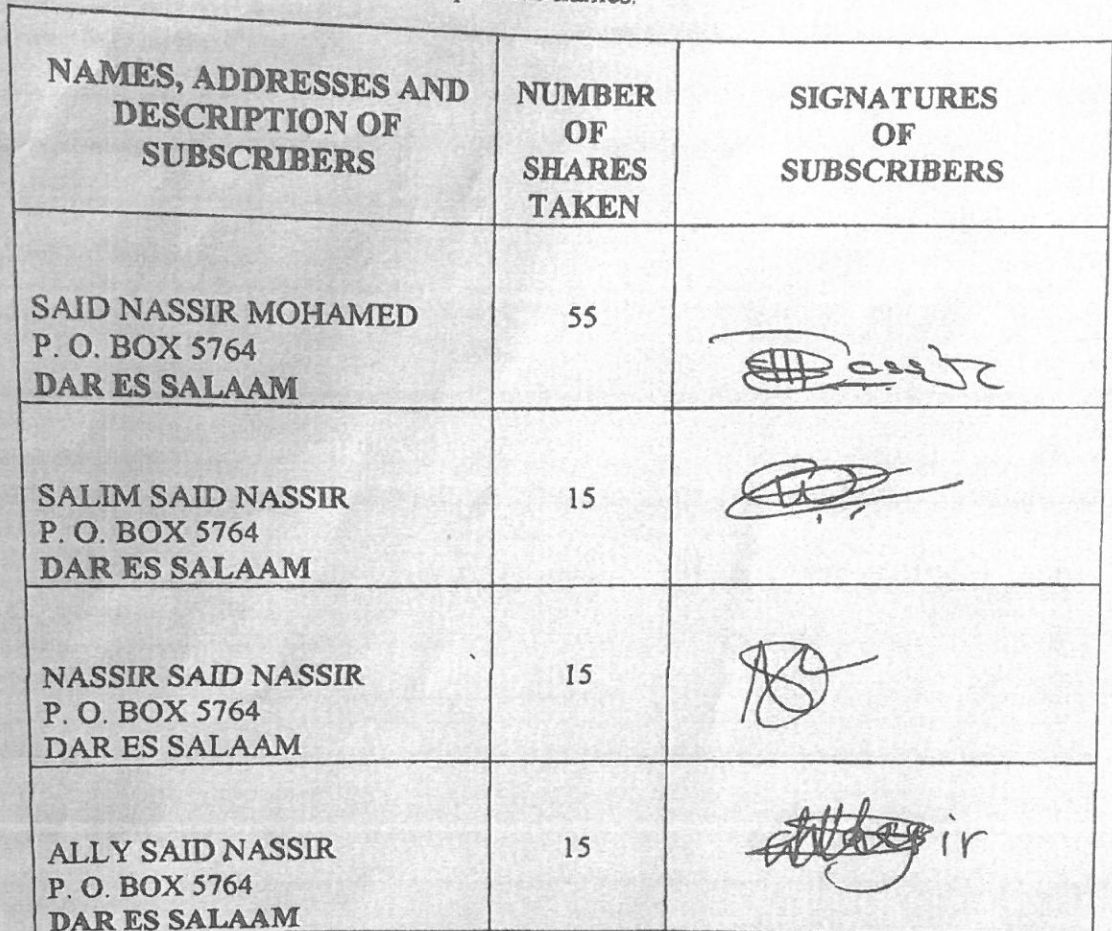 names.
NAMES, ADDRESSES AND
DESCRIPTION OF
SUBSCRIBERS
NUMBER
OF
SHARES
TAKEN
SIGNATURES
OF
SUBSCRIBERS
SAID NASSIR MOHAMED
P. O. BOX 5764
DAR ES SALAAM
55
SALIM SAID NASSIR
P. O. BOX 5764
DAR ES SALAAM
15
NASSIR SAID NASSIR
P. O. BOX 5764
DAR ES SALAAM
15
ALLY SAID NASSIR
P. O. BOX 5764
DAR ES SALAAM
15